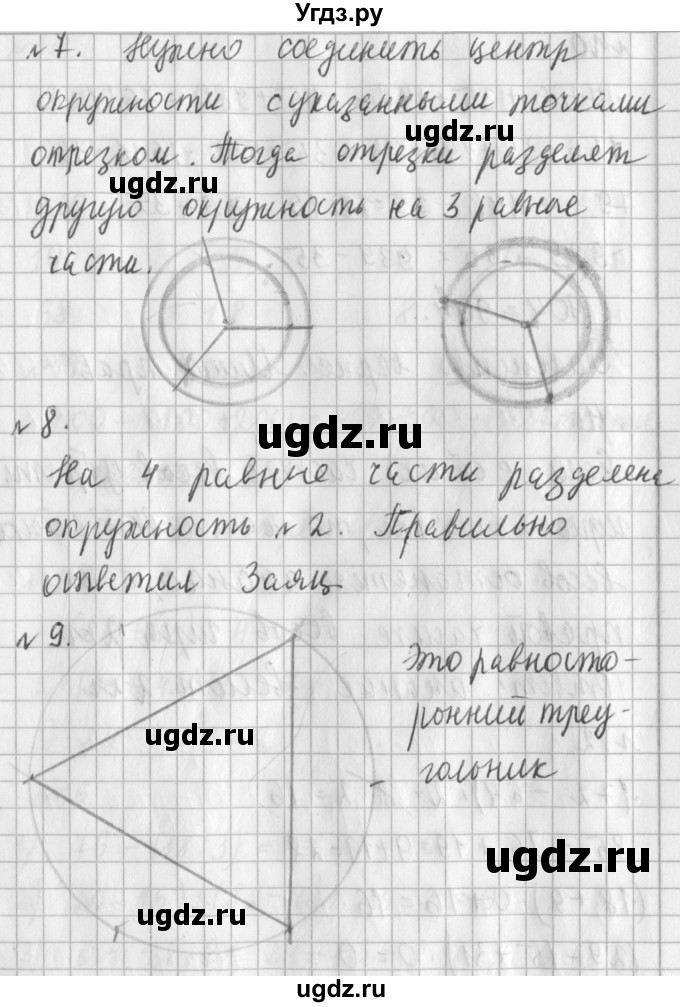 Угдз.ру
№7. Нужно соединить центр
окружности с указанными точками
ugdz.ru
отрезком. Тогда отрезки разделят
ugdz.ru
другую окружность на 3 равные
части.
№8.
ugdz.ru
На 4 равные части разделена
окружность №2. Правильно
ответил Заяц
№9.
Это равносто-
ронний треу-
гольник
ugdz.ru
ugdz.ru
ugdz.ru
ugdz.ru